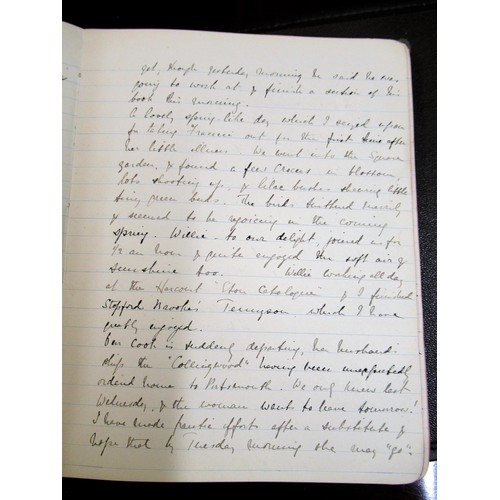 yet, though yesterday morning he said he was
going to work at & finish a section of his
book this morning.
A lovely spring like day which I seized upon
for taking Francie out for the first time after
her little illness. We went into the Square
garden, & found a few Crocus in blossom,
lots shooting up, & lilac bushes showing little
tiny green buds. The birds twittered merrily
& seemed to be rejoicing in the coming
spring. Willie - to our delight, joined us for
1/2 an hour & quite enjoyed the soft air &
sunshine too. Willie working all day
at the Harcourt "Eton Catalogue" & I finished
Stopford Brooke's Tennyson which I have
greatly enjoyed.
Our Cook is suddenly departing, her husband's
ship the "Collingwood" having been unexpectedly
ordered home to Portsmouth. We only knew last
Wednesday, & the woman want to leave tomorrow!
I have made frantic efforts after a substitute &
hope that by Tuesday morning she may "go".